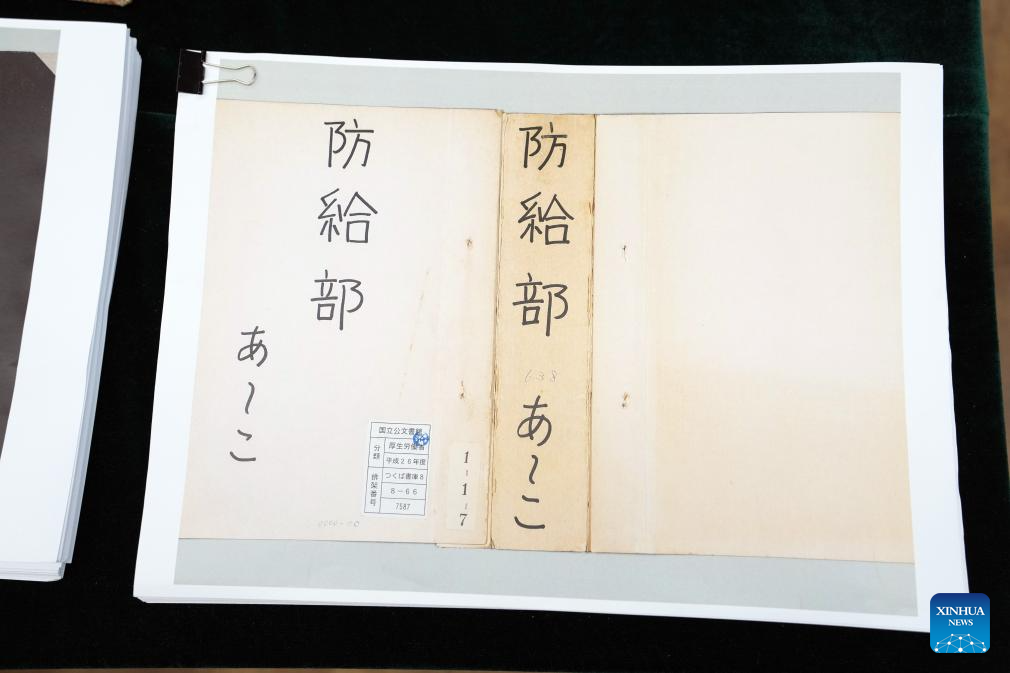 防給部
あ〜こ
国立公文書館
分類
厚生労働省
平成26年度
つくば書庫8
排架番号
8-66
7587
1-1-7
防給部
638
あ〜こ
XINHUA
NEWS